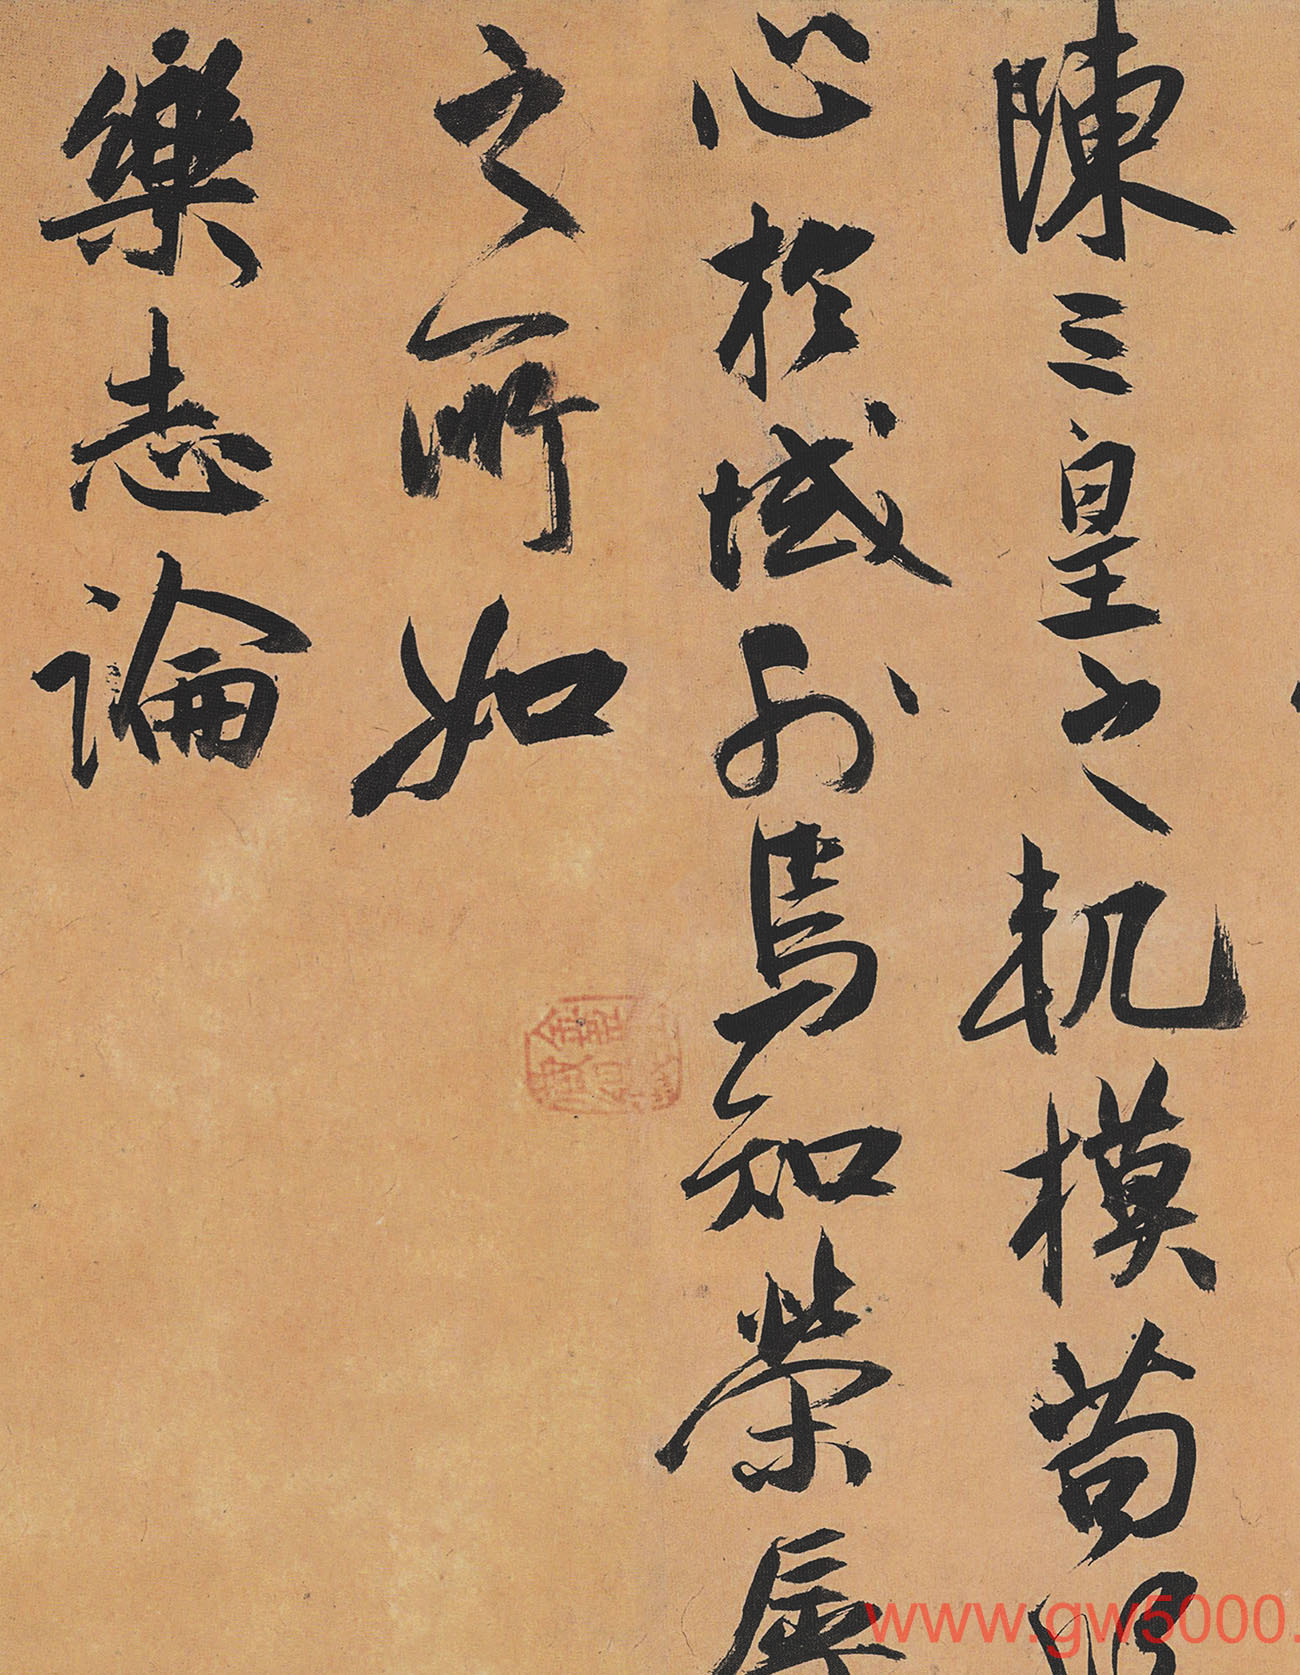 陳三皇之軌模苟
心於域外焉知榮辱
之所如
樂志論
www.gw5000.